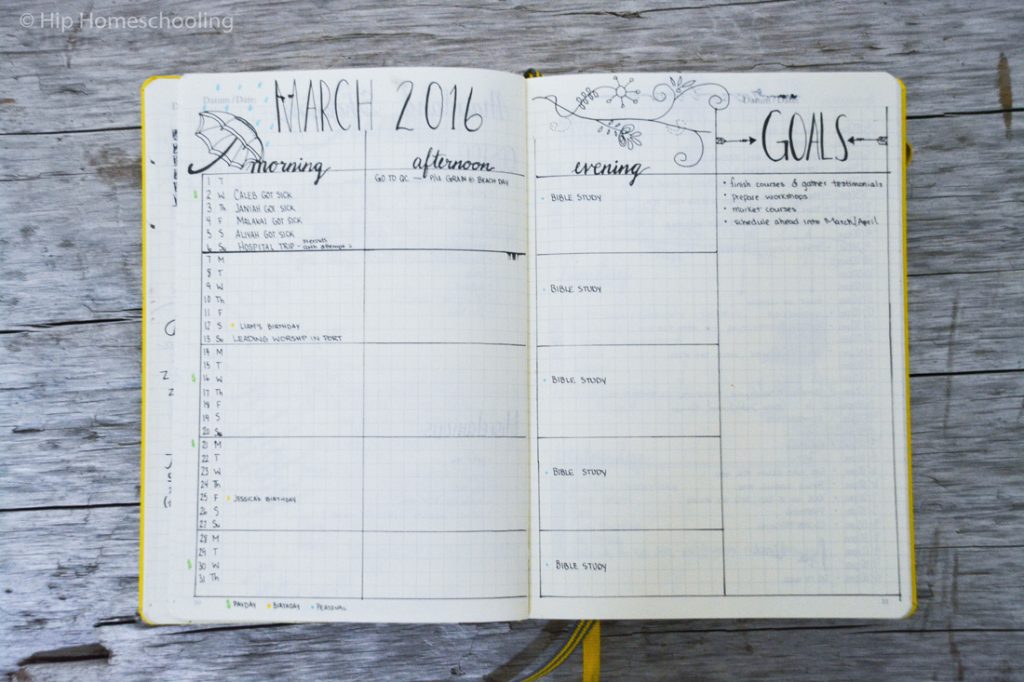 © Hip Homeschooling
Datum / Date:
MARCH 2016
morning
afternoon
1 T GO TO QC — P/U GRAIN & BEACH DAY
2 W CALEB GOT SICK
3 Th JANIAH GOT SICK
4 F MALAKAI GOT SICK
5 S ALIYAH GOT SICK
6 Su HOSPITAL TRIP -
7 M
8 T
9 W
10 Th
11 F
12 S LIAM'S BIRTHDAY
13 Su LEADING WORSHIP IN PORT
14 M
15 T
16 W
17 Th
18 F
19 S
20 Su
21 M
22 T
23 W
24 Th
25 F JESSICA'S BIRTHDAY
26 S
27 Su
28 M
29 T
30 W
31 Th
$ PAYDAY BIRTHDAY PERSONAL
evening
BIBLE STUDY
BIBLE STUDY
BIBLE STUDY
BIBLE STUDY
BIBLE STUDY
Datum / Date:
GOALS
• finish courses & gather testimonials
• prepare workshops
• market courses
• schedule ahead into March/April